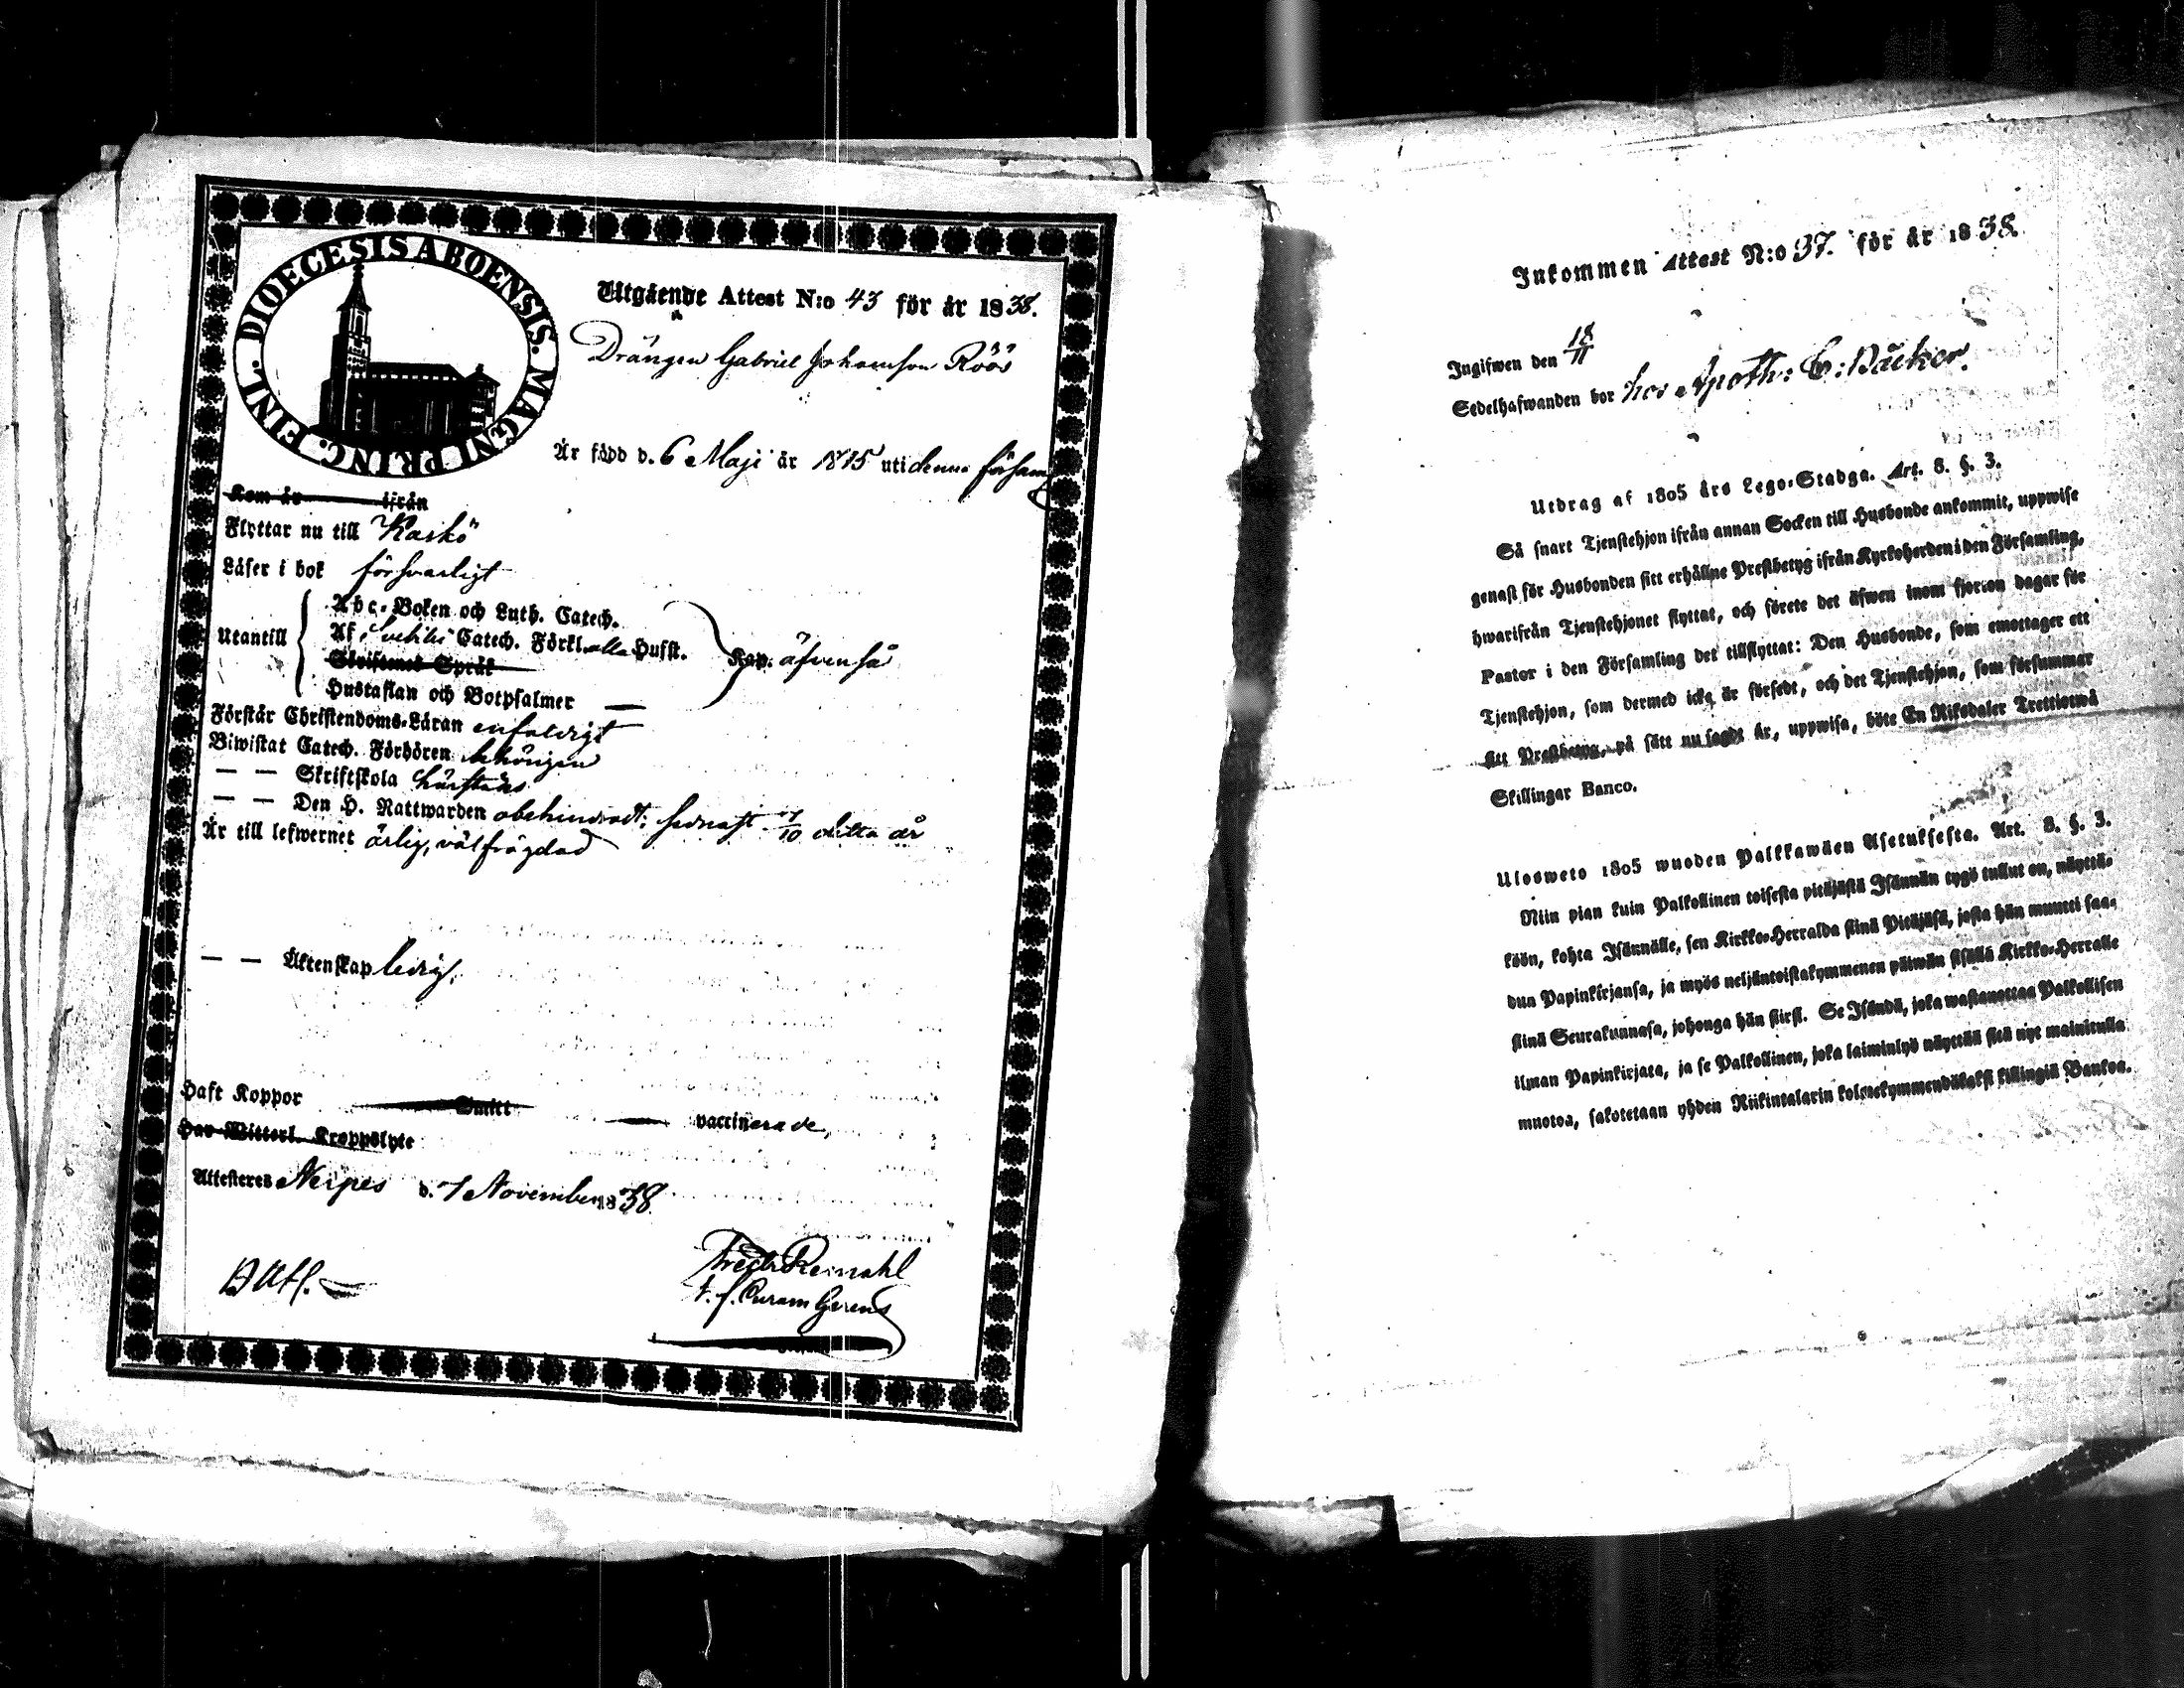 DIOECESIS ABOENSIS. MAGNI PRINC. FINL.
Utgående Attest N:o 43 för år 1838.
Drängen Gabriel Johansson Röös
Är född d. 6 Maji år 1815 uti denna försam
Kom år ifrån
Flyttar nu till Kaskö
Läser i bok försvarligt
Utantill
Abc-Boken och Luth. Catech.
Af Svebilii Catech. Förkl. alla Hufst.
Skriftenes Språk
Hustaflan och Botpsalmer
Kap. äfvenså
Förstår Christendoms-Läran enfaldigt
Biwistat Catech. Förhören behörigen
— — Skriftskola
— — Den H. Nattwarden obehindradt; sednast 7/10 detta år
Är till lefwernet ärlig, välfrägdad
— — Äktenskap ledig.
Haft Koppor Smitt vaccinerade,
Har Witterl. Kroppslyte
Attesteres Nerpes d. 7 November 1838.
Fredr Reinahl
v. f. Curam Gerens
Inkommen Attest N:o 37. för år 1838.
Ingifwen den 18/11
Sedelhafwanden bor hos Apoth: E: Bäcker.
Utdrag af 1805 års Lego-Stadga. Art. 8. §. 3.
Så snart Tjenstehjon ifrån annan Socken till Husbonde ankommit, uppwise
genast för Husbonden sitt erhållne Prestbetyg ifrån Kyrkoherden i den Församling,
hwarifrån Tjenstehjonet flyttat, och förete det äfwen inom fjorton dagar för
Pastor i den Församling det tillflyttat: Den Husbonde, som emottager ett
Tjenstehjon, som dermed icke är försedt, och det Tjenstehjon, som försummar
sitt Prestbetyg, på sätt nu sagdt är, uppwisa, böte En Riksdaler Trettiotwå
Skillingar Banco.
Ulosweto 1805 wuoden Palkkawäen Asetuksesta. Art. 8. §. 3.
Niin pian kuin Palkollinen toisesta pitäjästä Isännän tygö tullut on, näyttä-
köön, kohta Isännälle, sen Kirkko-Herralda siinä Pitäjäsä, josta hän muutti saa-
dun Papinkirjansa, ja myös neljäntoistakymmenen päiwän sisällä Kirkko-Herralle
siinä Seurakunnasa, johonga hän siirsi. Se Isändä, joka wastanottaa Palkollisen
ilman Papinkirjata, ja se Palkollinen, joka laiminlyö näyttää sitä nyt mainitulla
muotoa, sakotetaan yhden Riikintalarin kolmekymmendäkaksi killingiä Bankoa.